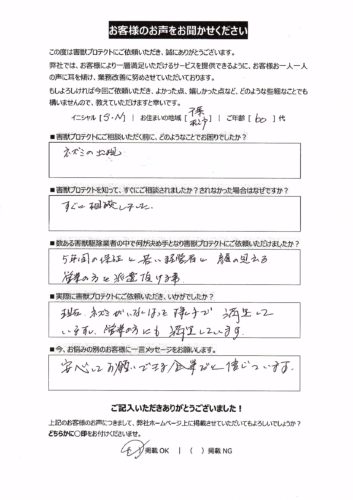 お客様のお声をお聞かせください
この度は害獣プロテクトにご依頼いただき、誠にありがとうございます。
弊社では、お客様により一層満足いただけるサービスを提供できるように、お客様お一人お一人
の声に耳を傾け、業務改善に努めさせていただいております。
もしよろしければ今回ご依頼いただき、よかった点、嬉しかった点など、どのような些細なことでも
構いませんので、教えていただけますと幸いです。
イニシャル [S・N] お住まいの地域 [千葉 ] ご年齢 [60] 代
■害獣プロテクトにご相談いただく前に、どのようなことでお困りでしたか?
ネズミの出現
■害獣プロテクトを知って、すぐにご相談されましたか?されなかった場合はなぜですか?
すぐに相談しました.
■数ある害獣駆除業者の中で何が決め手となり害獣プロテクトにご依頼いただけましたか?
5年間の保証と若い経営者と顔の見える
営業の方と 頂ける事
■実際に害獣プロテクトにご依頼いただき、いかがでしたか?
現在ネズミがいなくなった様子で満足して
います. 営業の方にも満足しています.
■今、お悩みの別のお客様に一言メッセージをお願いします。
安心してお願いできる企業だと信じています.
ご記入いただきありがとうございました!
上記のお客様のお声につきまして、弊社ホームページ上に掲載させていただいてもよろしいでしょうか?
どちらかに○印をお付けくださいませ。
( )掲載OK | ( )掲載NG